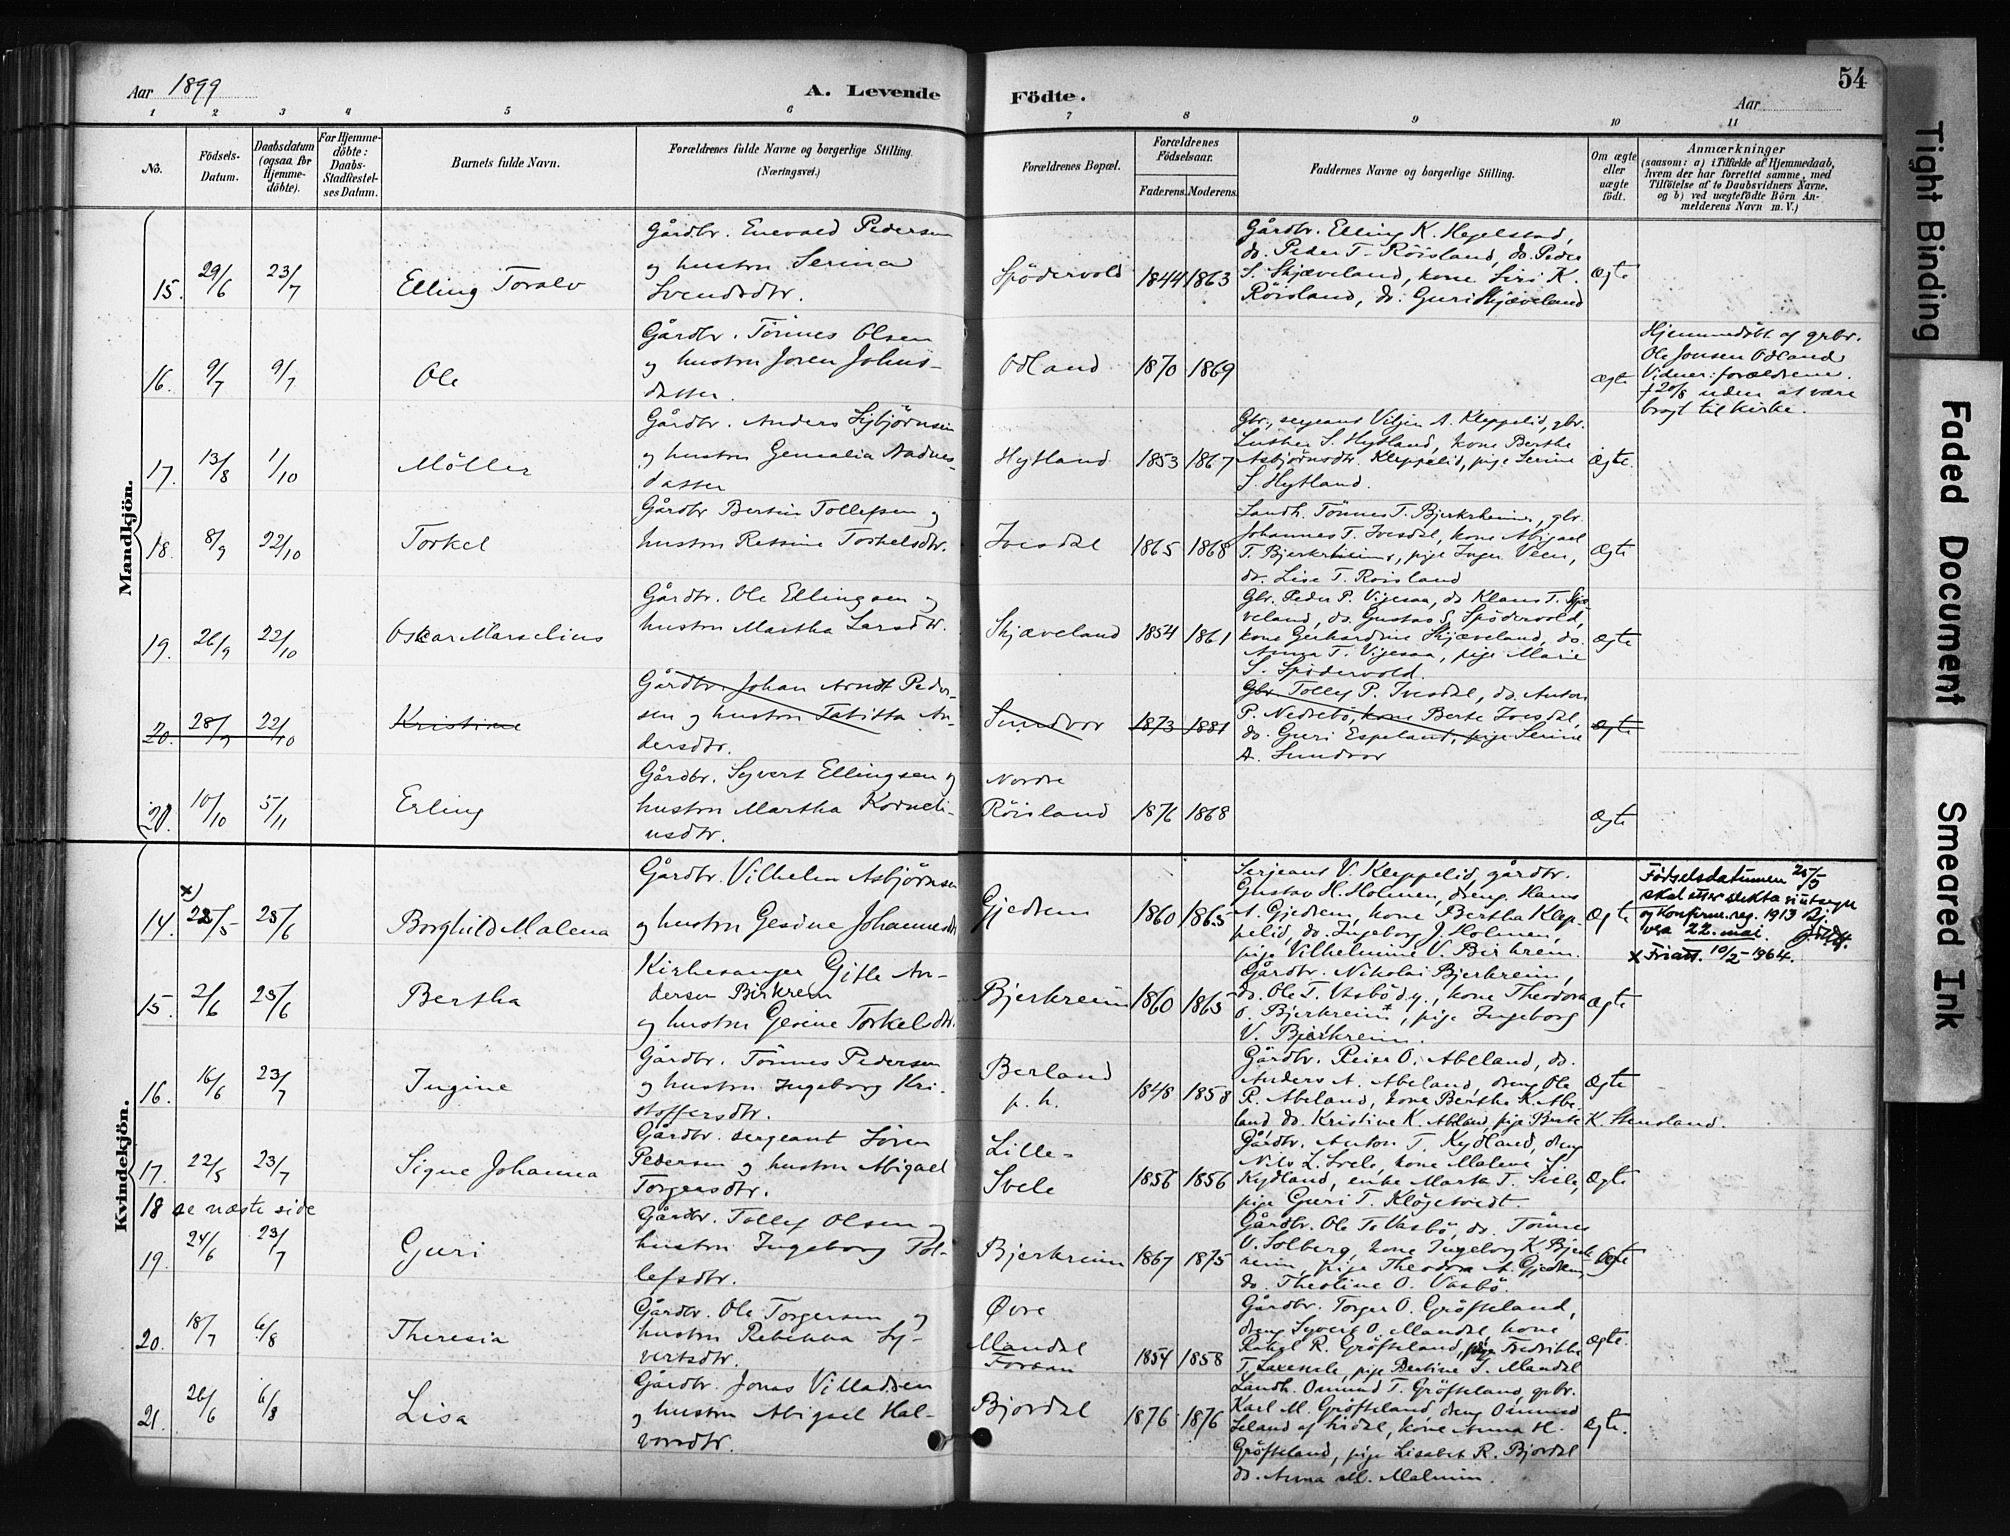 Aar 1899
A. Levende
Födte.
Aar
54
1 2 3 4 5 6 7 8 9 10 11
No.
Födsels-Datum.
Daabsdatum (ogsaa for Hjemmedöbte).
For Hjemmedöbte: Daabs-Stadfestelses Datum.
Barnets fulde Navn.
Forældrenes fulde Navne og borgerlige Stilling. (Næringsvei.)
Forældrenes Bopæl.
Forældrenes Födselsaar.
Faderens. Moderens.
Faddernes Navne og borgerlige Stilling.
Om ægte eller uægte födt.
Anmærkninger
(saasom: a) i Tilfælde af Hjemmedaab, hvem der har forrettet samme, med Tilföielse af to Daabsvidners Navne, og b) ved uægtefödte Börn Anmelderens Navn m. V.)
Mandkjön.
15. 29/6 23/7
Elling Toralv
Gårdbr. Enevald Pedersen
og hustru Serina
Svendsdtr.
Spödervold 1844 1863
Gårdbr. Elling K. Hegelstad,
do. Peder T. Röisland, do. Peder
S. Skjæveland, kone Siri K.
Röisland, do. Guri Skjæveland
Ægte
16. 9/7 9/7
Ole
Gårdbr. Tönnes Olsen
og hustru Joren Johns-
datter.
Odland 1870 1869
ægte
Hjemmedöbt af grbr.
Ole Jonsen Odland
Vidner: forældrene.
† 20/8 uden at være
bragt til kirke.
17. 13/8 1/10
Möller
Gårdbr. Anders Asbjörnsen
og hustru Gemalia Aadnes-
datter
Hytland 1853 1867
Gbr., sergeant Viljen A. Kleppelid, gbr.
Luther S. Hytland, kone Berthe
Asbjörnsdtr. Kleppelid, pige Serine
S. Hytland.
Ægte.
18. 8/9 22/10
Torkel
Gårdbr Bertin Tollefsen og
hustru Retsine Torkelsdtr.
Ivesdal 1865 1868
Landh. Tönnes T. Bjerkrheim, gbr.
Johannes T. Ivesdal, kone Abigael
T. Bjerkrheim, pige Inger Veen,
do. Lise T. Röisland
Ægte
19. 26/9 22/10
Oskar Marselius
Gårdbr. Ole Ellingsen og
hustru Martha Larsdtr.
Skjæveland 1854 1861
Gbr. Peder P. Vigesaa, do Klaus T. Skjæ-
veland, do. Gustav S. Spödervold,
kone Gerhardine Skjæveland, do.
Anna T. Vigesaa, pige Marie
S. Spödervold.
Ægte
20. 28/9 22/10
Kristine
Gårdbr. Johan Arndt Peder-
sen og hustru Tabitha An-
dersdtr.
Sundvor 1873 1881
Gbr. Tollef P. Ivesdal, do. Anton
P. Nedrebö, kone Berte Ivesdal,
do. Guri Espeland, pige Serine
A. Sundvor
Ægte
20. 10/10 5/11
Erling
Gårdbr. Syvert Ellingsen og
hustru Martha Korneli-
usdtr.
Nordre
Röisland 1876 1868
Ægte
Kvindekjön.
14. x) 25/5 25/6
Borghild Malena
Gårdbr. Vilhelm Asbjörnsen
og hustru Gesine Johannesdtr
Gjedrem 1860 1865
Serjeant V. Kleppelid, gårdbr.
Gustav H. Holmen, dreng Hans
A. Gjedrem, kone Bertha Klep-
pelid, do. Ingeborg J. Holmen,
pige Vilhelmine V. Birkrem.
Ægte
Födselsdatumen 25/5
skal etter slekta si utsegn
og Konfirm.reg. 1913
vera 22. mai.
x Friatt. 10/2-1964.
15. 2/6 25/6
Bertha
Kirkesanger Gitle An-
dersen Birkrem
og hustru Gesine Torkelsdtr.
Bjerkreim 1860 1865
Gårdbr. Nikolai Bjerkreim,
do. Ole T. Vasbö d.y., kone Theodora
O. Bjerkreim, pige Ingeborg
V. Bjerkreim.
Ægte
16. 16/6 23/7
Ingine
Gårdbr. Tönnes Pedersen
og hustru Ingeborg Kri-
stoffersdtr.
Berland
p. h. 1848 1858
Gårdbr. Peder O. Abeland, do.
Anders A. Abeland, dreng Ole
R. Abeland, kone Berthe K. Abe-
land do. Kristine K. Abeland, pige Berte K. Stensland.
Ægte
17. 22/5 23/7
Signe Johanna
Gårdbr. sergeant Sören
Pedersen og hustru Abigael
Torgersdtr.
Lille-
Svele 1856 1856
Gårdbr. Anton T. Kydland, dreng
Nils L. Svele, kone Malene S.
Kydland, enke Marta T. Svele,
pige Guri T. Klögetvedt.
Ægte
18 se næste side
19. 24/6 23/7
Guri
Gårdbr. Tollef Olsen og
hustru Ingeborg Tol-
lefsdtr.
Bjerkreim 1867 1875
Gårdbr. Ole T. Vasbö, do. Tönnes
V. Solberg, kone Ingeborg K. Bjerk-
reim, pige Theodora A. Gjedrem,
do. Theoline O. Vasbö.
Ægte
20. 18/7 6/8
Theresia
Gårdbr. Ole Torgersen og
hustru Rebekka Sy-
vertsdtr.
Övre
Mandal
Forsan 1854 1858
Gårdbr. Torger O. Gröfteland,
dreng Syvert O. Mandal, kone
Rakel R. Gröfteland, pige Fredrikke
T. Laxesvele, pige Bertine S. Mandal
Ægte.
21. 26/6 6/8
Lisa
Gårdbr. Jonas Villadsen
og hustru Abigael Hal-
vorsdtr.
Bjordal 1876 1876
Landh. Omund T. Gröfteland, grbr.
Karl M. Gröfteland, dreng Omund
Seland af Lidal, kone Anna H.
Gröfteland, pige Lisabet R. Bjordal
do. Anna M. Malmin.
Ægte.
Tight Binding
Faded Document
Smeared Ink